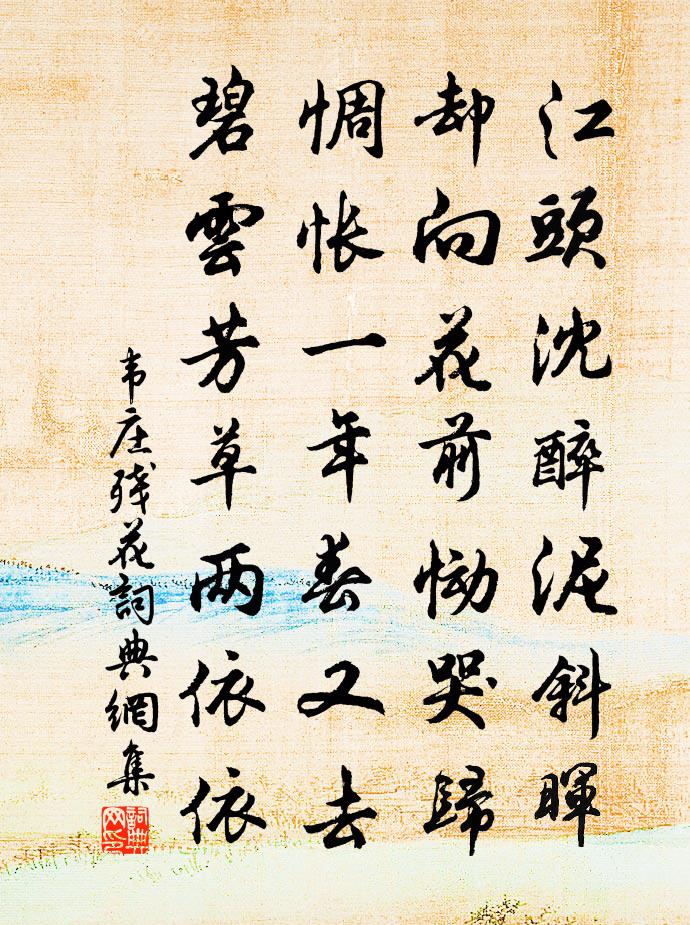 江頭沈醉泥斜暉
却向花前慟哭歸
惆悵一年春又去
碧雲芳草两依依
韦庄残花詞典網集
詞典网印